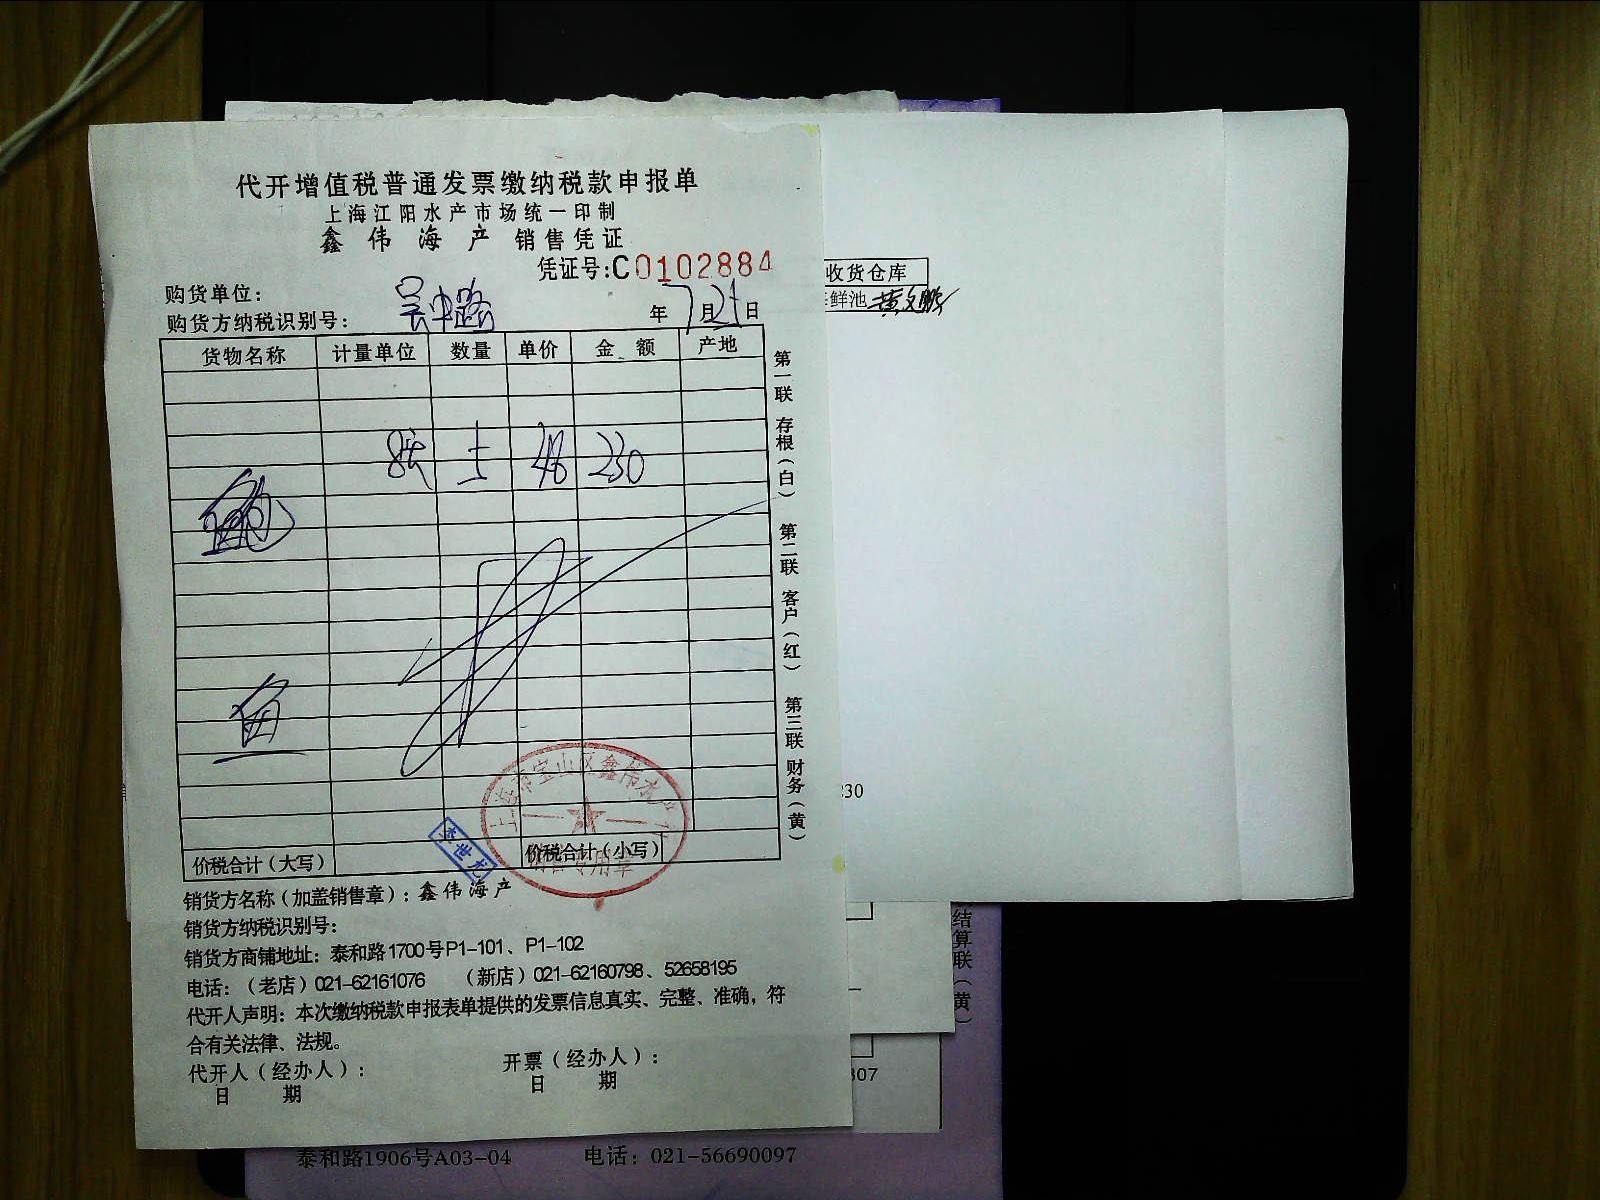 代开增值税普通发票缴纳税款申报单
上海江阳水产市场统一印制
鑫伟海产 销售凭证
凭证号:C0102884
购货单位:
购货方纳税识别号: 吴中路
年 7月25日
货物名称 计量单位 数量 单价 金额 产地
46 230
鱼
价税合计（大写） 价税合计（小写）
上海市宝山区鑫伟水产
专用章
李世龙
第一联 存根（白）
第二联 客户（红）
第三联 财务（黄）
销货方名称（加盖销售章）：鑫伟海产
销货方纳税识别号:
销货方商铺地址：泰和路1700号P1-101、P1-102
电话：（老店）021-62161076 （新店）021-62160798、52658195
代开人声明：本次缴纳税款申报表单提供的发票信息真实、完整、准确，符
合有关法律、法规。
代开人（经办人）： 开票（经办人）：
日 期 日 期
收货仓库
鲜池 黄文鹏
230
结算联（黄）
807
泰和路1906号A03-04 电话：021-56690097